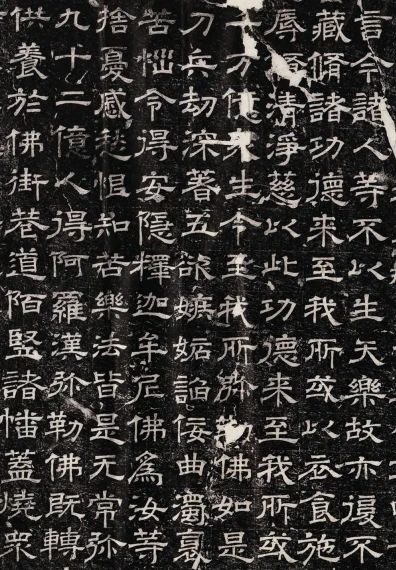 言今諸人等不以生天樂故亦復不
藏脩諸功德来至我所或以衣食施
辱清淨慈以此功德来至我所或
万億衆生今至我所弥勒佛如是
刀兵劫深著五欲嫉妬諂佞曲濁
苦惱令得安隱釋迦牟尼佛爲汝等
捨憂慼愁恨知苦樂法皆是无常弥
九十二億人得阿羅漢弥勒佛既轉
供養於佛街巷道陌竪諸幡蓋燒衆